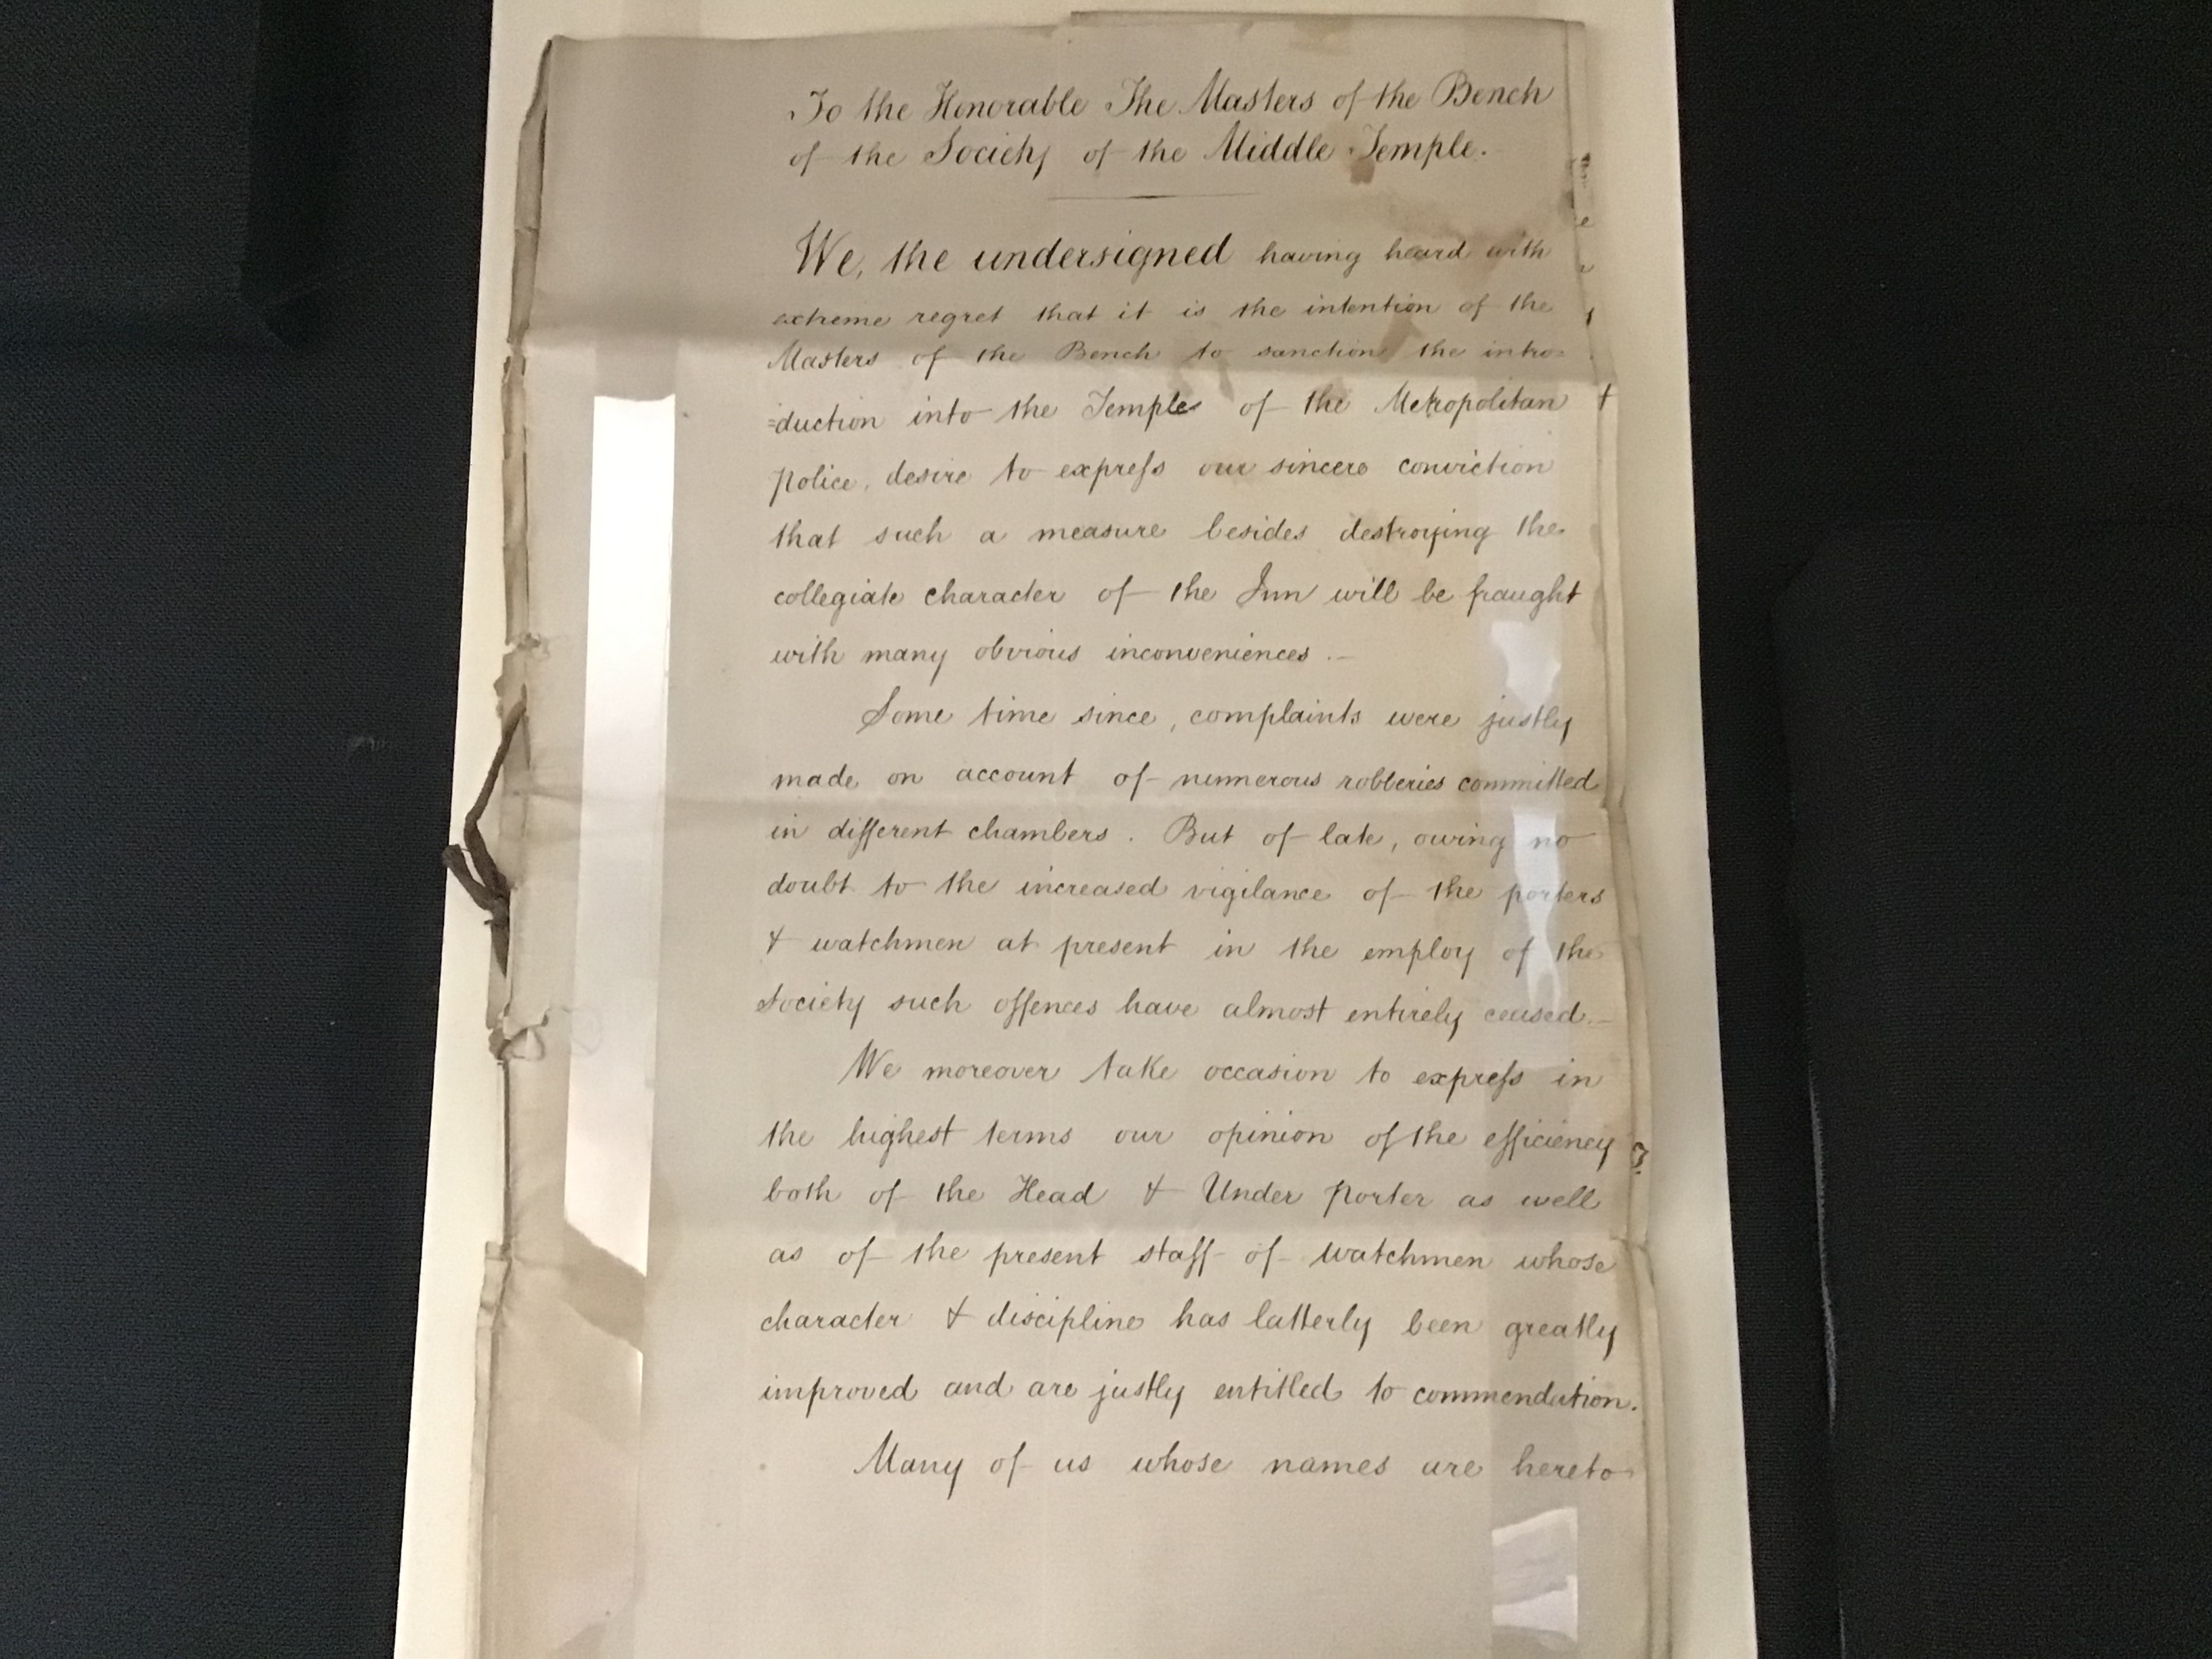 To the Honorable The Masters of the Bench
of the Society of the Middle Temple.
We, the undersigned having heard with
extreme regret that it is the intention of the
Masters of the Bench to sanction the intro=
=duction into the Temple of the Metropolitan
Police, desire to expreſs our sincere conviction
that such a measure besides destroying the
collegiate character of the Inn will be fraught
with many obvious inconveniences.—
Some time since, complaints were justly
made on account of numerous robberies committed
in different chambers. But of late, owing no
doubt to the increased vigilance of the porters
& watchmen at present in the employ of the
Society such offences have almost entirely ceased.—
We moreover take occasion to expreſs in
the highest terms our opinion of the efficiency
both of the Head & Under Porter as well
as of the present staff of watchmen whose
character & discipline has latterly been greatly
improved and are justly entitled to commendation.
Many of us whose names are hereto